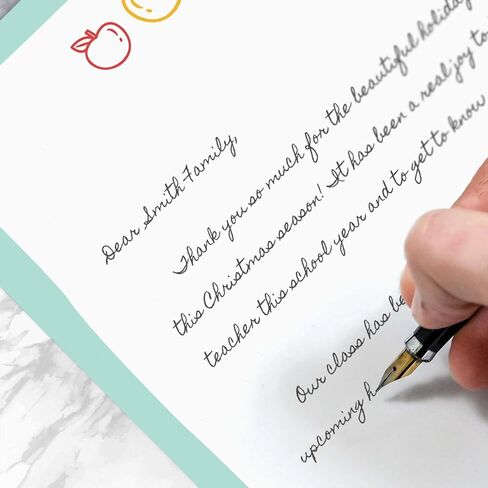 Dear Smith Family,
Thank you so much for the beautiful holiday
this Christmas season! It has been a real joy to
teacher this school year and to get to know
Our class has be
upcoming h